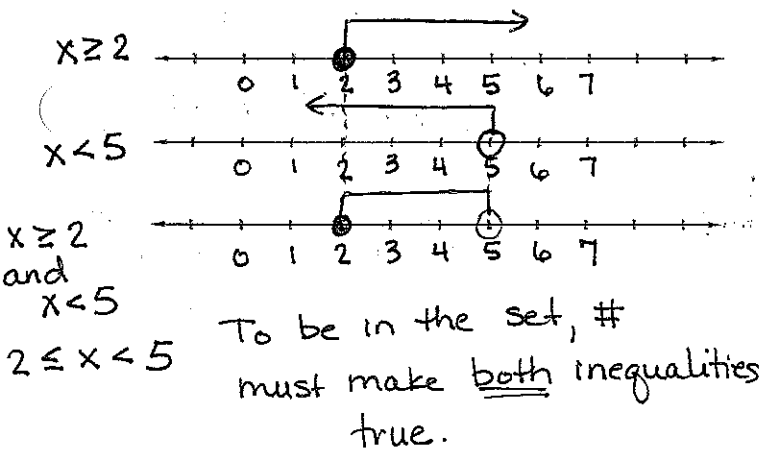 x ≥ 2
0 1 2 3 4 5 6 7
x < 5
0 1 2 3 4 5 6 7
x ≥ 2
and
x < 5
0 1 2 3 4 5 6 7
2 ≤ x < 5
To be in the set, #
must make both inequalities
true.